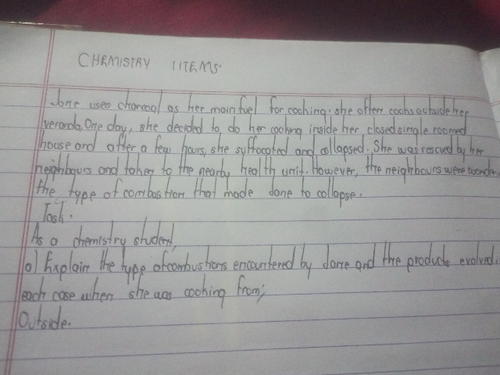 CHEMISTRY ITEMS.
Jane uses charcoal as her main fuel for cooking. she often cooks outside her
veranda. One day, she decided to, do her cooking inside her closed single roomed
house and after a few hours, she suffocated and collapsed. She was rescued by her
neighbours and taken to the nearby health unit. However, the neighbours were wonder
the type of combastion that made Jane to collapse.
Task.
As a chemistry student,
a) Explain the type of combustions encountered by Jane and the products evolved.
each case when she was cooking from;
Outside.